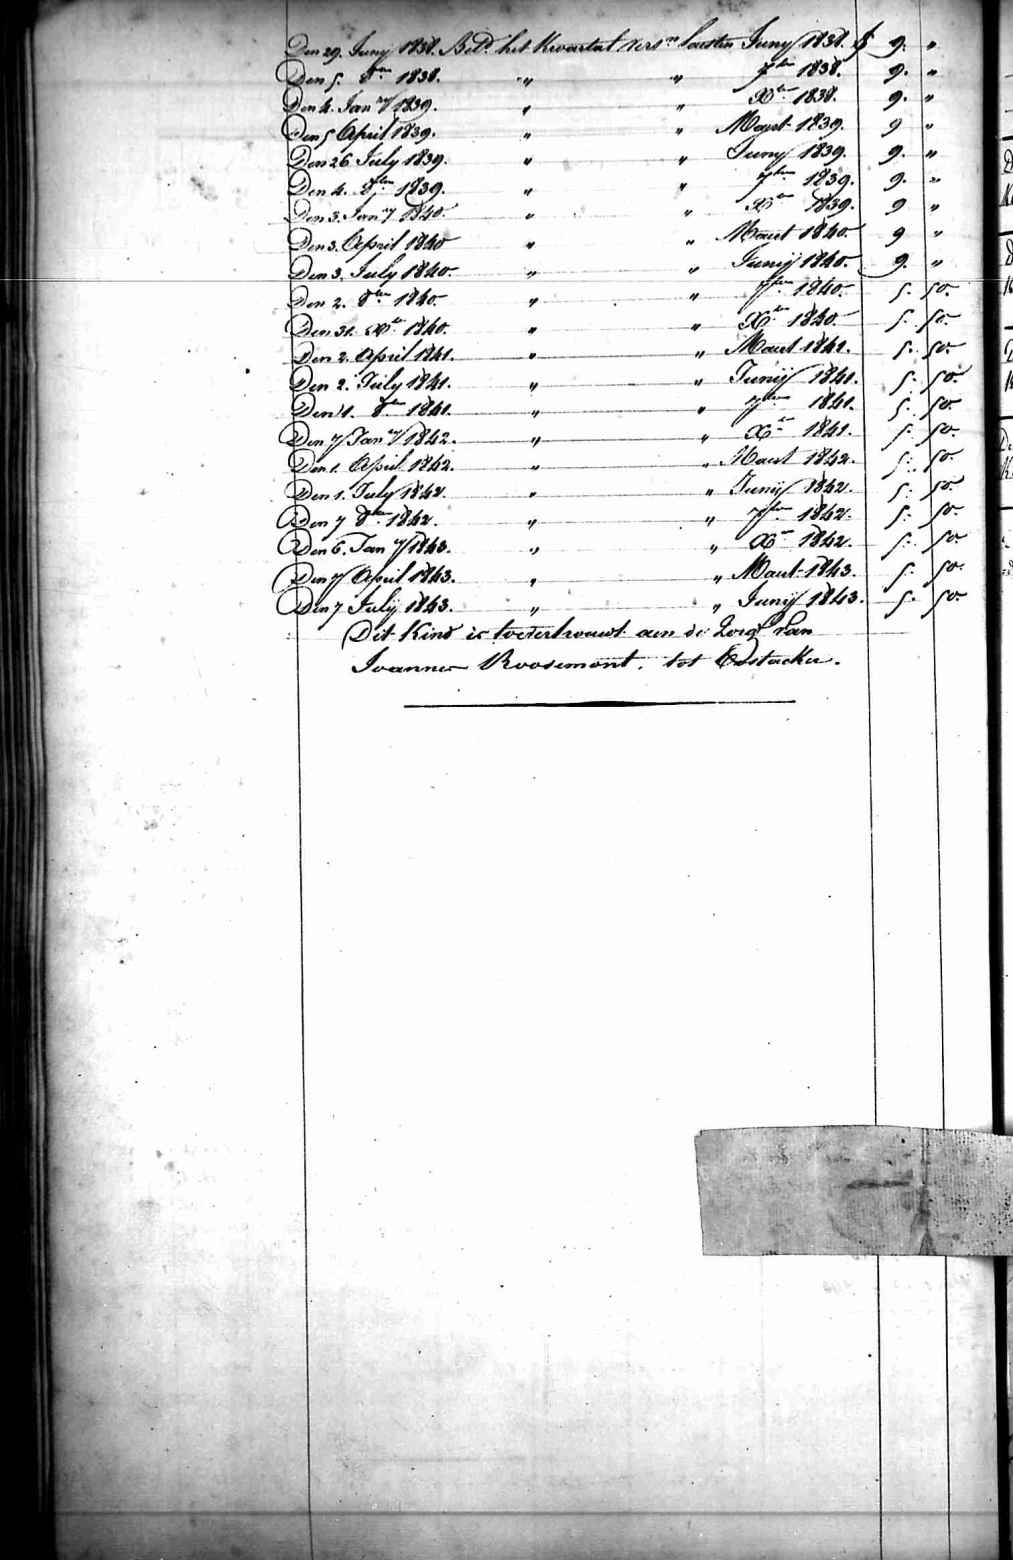 Den 29. Juny 1838. Betd. het kwartal vers.n laesten Juny 1838. f 9. "
Den 5. 8ber 1838. " " 7ber 1838. 9. "
Den 4. Jan.ry 1839. " " Xber 1838. 9. "
Den 5 April 1839. " " Maert 1839. 9 "
Den 26 July 1839. " " Juny 1839. 9. "
Den 4. 8ber 1839. " " 7ber 1839. 9. "
Den 3. Jan.ry 1840. " " Xber 1839. 9 "
Den 3. April 1840 " " Maert 1840. 9 "
Den 3. July 1840. " " Junij 1840. 9. "
Den 2. 8ber 1840. " " 7ber 1840. 5. 50.
Den 31. Xber 1840. " " Xber 1840. 5. 50.
Den 2. April 1841. " " Maert 1841. 5. 50.
Den 2. July 1841. " " Junij 1841. 5. 50.
Den 1. 8ber 1841. " " 7ber 1841. 5. 50.
Den 7 Jan.ry 1842. " " Xber 1841. 5. 50.
Den 1. April 1842. " " Maert 1842. 5. 50.
Den 1. July 1842. " " Junij 1842. 5. 50.
Den 7 8ber 1842. " " 7ber 1842. 5. 50.
Den 6. Jan.ry 1843. " " Xber 1842. 5. 50.
Den 7 April 1843. " " Maert 1843. 5. 50.
Den 7 Julij 1843. " " Junij 1843. 5. 50.
Dit Kind is toevertrouwt aen de zorg van
Joannes Roosemont. tot Oostacker.